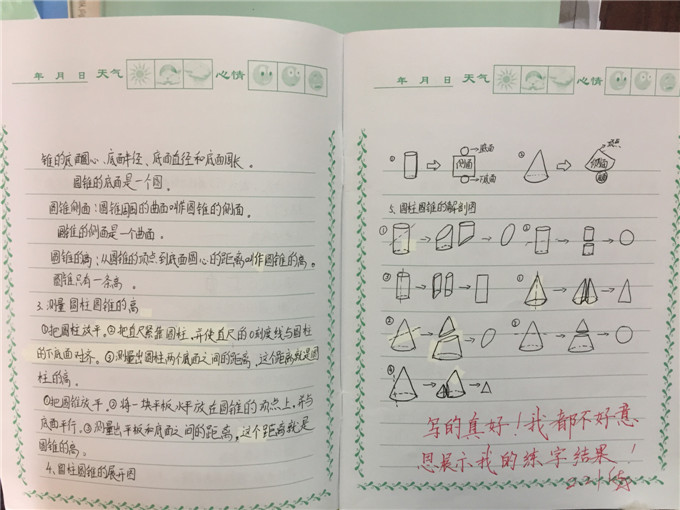 年 月 日 天气 心情
锥的底面圆心、底面半径、底面直径和底面周长。
圆锥的底面是一个圆。
圆锥侧面:圆锥周围的曲面叫作圆锥的侧面。
圆锥的侧面是一个曲面。
圆锥的高:从圆锥的顶点到底面圆心的距离叫作圆锥的高。
圆锥只有一条高。
3.测量圆柱圆锥的高
①把圆柱放平。②把直尺紧靠圆柱,并使直尺的0刻度线与圆柱
的下底面对齐。④测量出圆柱两个底面之间的距离,这个距离就是圆
柱的高。
①把圆锥放平。②将一块平板水平放在圆锥的顶点上,并与
底面平行。③测量出平板和底面之间的距离,这个距离就是
圆锥的高。
4.圆柱圆锥的展开图
年 月 日 天气 心情
① 底面 侧面 下底面 ②
5.圆柱圆锥的解剖图
① ②
写的真好!我都不好意
思展示我的练字结果!